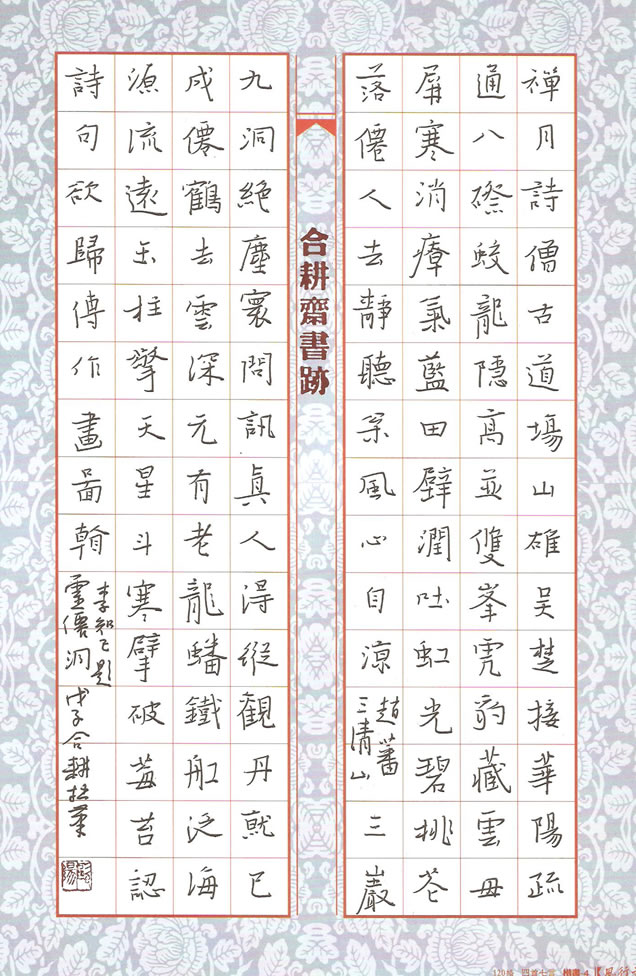 禪月詩僧古道場山雄吳楚接華陽疏
通八磜蛟龍隱高並雙峯虎豹藏雲母
屏寒消瘴氣藍田璧潤吐虹光碧桃花
落僊人去靜聽松風心自涼
趙蕃
三清山
三巖
合耕齋書跡
九洞絕塵寰問訊眞人得縱觀丹就已
成僊鶴去雲深元有老龍蟠鐵舡泛海
源流遠玉柱擎天星斗寒擘破莓苔認
詩句欲歸傳作畫啚翰
李知己題
靈僊洞
戊子合耕拙筆
120格 四首七言 楷書-4